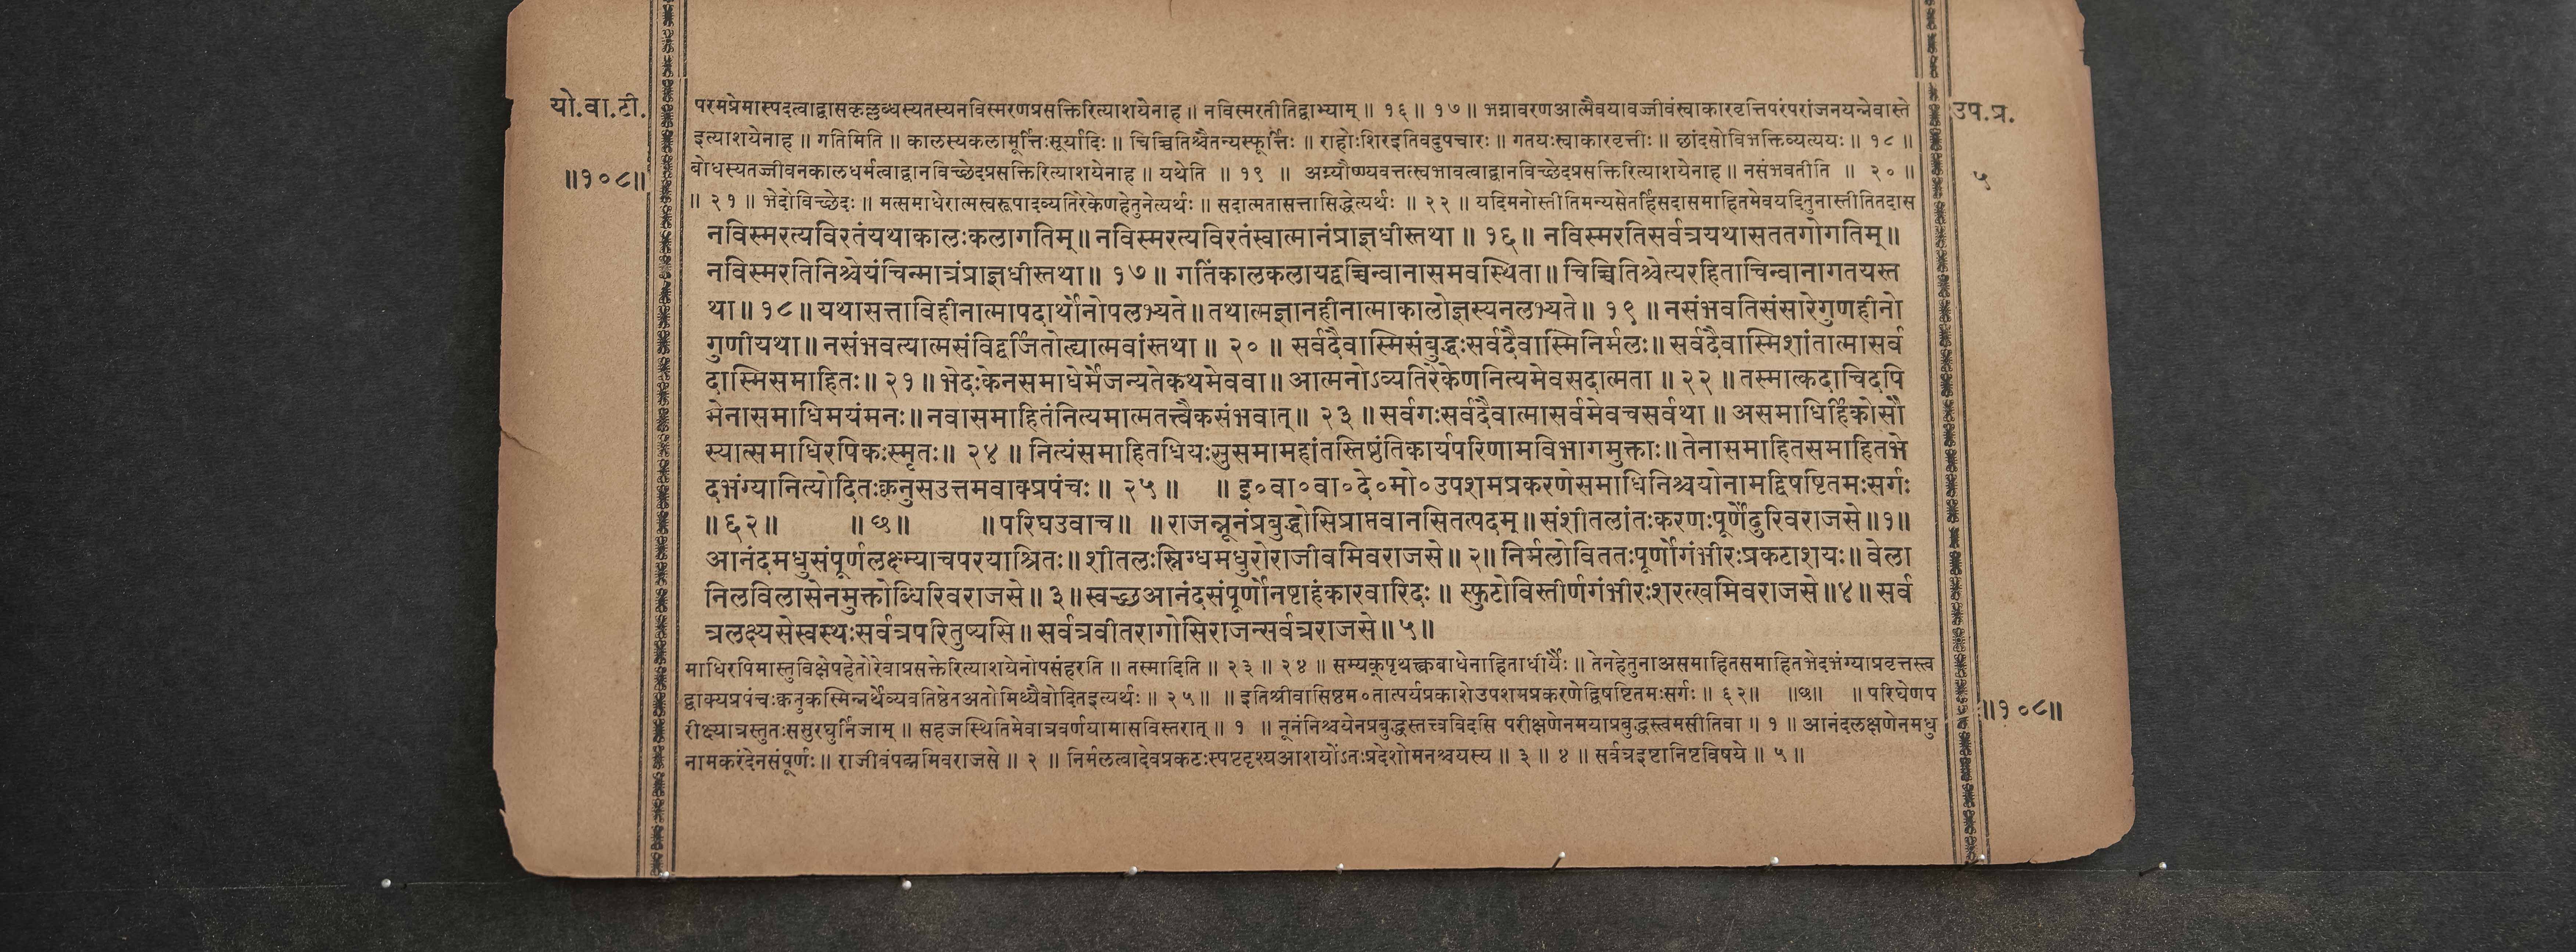 यो.वा.टी.
॥१०८॥
परमप्रेमास्पदत्वाद्वासकृल्लब्धस्यतस्यनविस्मरणप्रसक्तिरित्याशयेनाह ॥ नविस्मरतीतिद्वाभ्याम् ॥ १६ ॥ १७ ॥ भग्नावरणआत्मैवयावज्जीवंस्वाकारवृत्तिपरंपरांजनयन्नेवास्ते
इत्याशयेनाह ॥ गतिमिति ॥ कालस्यकलामूर्त्तिःसूर्यादिः ॥ चिच्चितिश्चैतन्यस्फूर्त्तिः ॥ राहोःशिरइतिवदुपचारः ॥ गतयःस्वाकारवृत्तीः ॥ छांदसोविभक्तिव्यत्ययः ॥ १८ ॥
बोधस्यतज्जीवनकालधर्मत्वाद्वानविच्छेदप्रसक्तिरित्याशयेनाह ॥ यथेति ॥ १९ ॥ अग्न्यौष्ण्यवत्तत्स्वभावत्वाद्वानविच्छेदप्रसक्तिरित्याशयेनाह ॥ नसंभवतीति ॥ २० ॥
॥ २१ ॥ भेदोविच्छेदः ॥ मत्समाधेरात्मस्वरूपादव्यतिरेकेणहेतुनेत्यर्थः ॥ सदात्मतासत्तासिद्धेत्यर्थः ॥ २२ ॥ यदिमनोस्तीतिमन्यसेतर्हिसदासमाहितमेवयदितुनास्तीतितदास
नविस्मरत्यविरतंयथाकालःकलागतिम् ॥ नविस्मरत्यविरतंस्वात्मानंप्राज्ञधीस्तथा ॥ १६ ॥ नविस्मरतिसर्वत्रयथासततगोगतिम् ॥
नविस्मरतिनिश्चेयंचिन्मात्रंप्राज्ञधीस्तथा ॥ १७ ॥ गतिंकालकलायद्वच्चिन्वानासमवस्थिता ॥ चिच्चितिश्चेत्यरहिताचिन्वानागतयस्त
था ॥ १८ ॥ यथासत्ताविहीनात्मापदार्थोनोपलभ्यते ॥ तथात्मज्ञानहीनात्माकालोज्ञस्यनलभ्यते ॥ १९ ॥ नसंभवतिसंसारेगुणहीनो
गुणीयथा ॥ नसंभवत्यात्मसंविद्वर्जितोह्यात्मवांस्तथा ॥ २० ॥ सर्वदैवास्मिसंबुद्धःसर्वदैवास्मिनिर्मलः ॥ सर्वदैवास्मिशांतात्मासर्व
दास्मिसमाहितः ॥ २१ ॥ भेदःकेनसमाधेर्मेजन्यतेकथमेववा ॥ आत्मनोऽव्यतिरेकेणनित्यमेवसदात्मता ॥ २२ ॥ तस्मात्कदाचिदपि
मेनासमाधिमयंमनः ॥ नवासमाहितंनित्यमात्मतत्त्वैकसंभवात् ॥ २३ ॥ सर्वगःसर्वदैवात्मासर्वमेवचसर्वथा ॥ असमाधिर्हिकोसौ
स्यात्समाधिरपिकःस्मृतः ॥ २४ ॥ नित्यंसमाहितधियःसुसमामहांतस्तिष्ठंतिकार्यपरिणामविभागमुक्ताः ॥ तेनासमाहितसमाहितभे
दभंग्यानित्योदितःक्वनुसउत्तमवाक्प्रपंचः ॥ २५ ॥ ॥ इ०वा०वा०दे०मो०उपशमप्रकरणेसमाधिनिश्चयोनामद्विषष्टितमःसर्गः
॥ ६२ ॥ ॥ छ ॥ ॥ परिघउवाच ॥ ॥ राजन्नूनंप्रबुद्धोसिप्राप्तवानसितत्पदम् ॥ संशीतलांतःकरणःपूर्णेंदुरिवराजसे ॥ १ ॥
आनंदमधुसंपूर्णलक्ष्म्याचपरयाश्रितः ॥ शीतलःस्निग्धमधुरोराजीवमिवराजसे ॥ २ ॥ निर्मलोविततःपूर्णोगंभीरःप्रकटाशयः ॥ वेला
निलविलासेनमुक्तोब्धिरिवराजसे ॥ ३ ॥ स्वच्छआनंदसंपूर्णोनष्टाहंकारवारिदः ॥ स्फुटोविस्तीर्णगंभीरःशरत्खमिवराजसे ॥ ४ ॥ सर्व
त्रलक्ष्यसेस्वस्थःसर्वत्रपरितुष्यसि ॥ सर्वत्रवीतरागोसिराजन्सर्वत्रराजसे ॥ ५ ॥
माधिरपिमास्तुविक्षेपहेतोरेवाप्रसक्तेरित्याशयेनोपसंहरति ॥ तस्मादिति ॥ २३ ॥ २४ ॥ सम्यक्पृथक्त्वबाधेनाहिताधीर्यैः ॥ तेनहेतुनाअसमाहितसमाहितभेदभंग्याप्रवृत्तस्त्व
द्वाक्यप्रपंचःक्वनुकस्मिन्नर्थेव्यवतिष्ठेतअतोमिथ्यैवोदितइत्यर्थः ॥ २५ ॥ ॥ इतिश्रीवासिष्ठम०तात्पर्यप्रकाशेउपशमप्रकरणेद्विषष्टितमःसर्गः ॥ ६२ ॥ ॥ छ ॥ ॥ परिघेणप
रीक्ष्यात्रस्तुतःससुरघुर्निजाम् ॥ सहजस्थितिमेवात्रवर्णयामासविस्तरात् ॥ १ ॥ नूनंनिश्चयेनप्रबुद्धस्तत्त्वविदसि परीक्षणेनमयाप्रबुद्धस्त्वमसीतिवा ॥ १ ॥ आनंदलक्षणेनमधु
नामकरंदेनसंपूर्णः ॥ राजीवंपद्ममिवराजसे ॥ २ ॥ निर्मलत्वादेवप्रकटःस्पष्टदृश्यआशयोंऽतःप्रदेशोमनश्चयस्य ॥ ३ ॥ ४ ॥ सर्वत्रइष्टानिष्टविषये ॥ ५ ॥
उप.प्र.
५
॥१०८॥